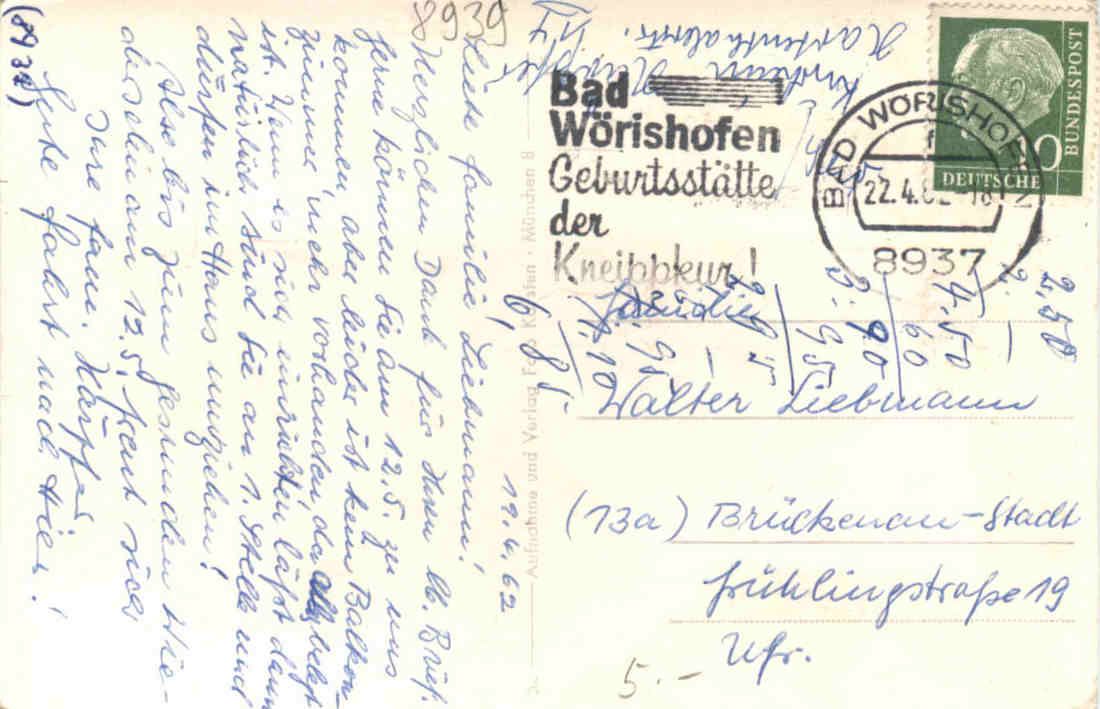 (8937)
8939
19.4.62
Liebe Familie Liebmann!
Herzlichen Dank für Ihren lb. Brief.
Gerne können Sie am 12.5. zu uns
kommen, aber leider ist kein Balkon-
zimmer mehr vorhanden da alles belegt
ist. Wenn es sich einrichten läßt dann
natürlich sind Sie an 1. Stelle und
dürfen im Haus umziehen!
Also bis zum gesunden Wie-
dersehen am 12.5. freut sich
Ihre Fam.
Gute Fahrt nach hier!
Aufnahme und Verlag · München 8
Bad
Wörishofen
Geburtsstätte
der
Kneippkur!
BAD WÖRISHOFEN
22.4.62-18
8937
DEUTSCHE
BUNDESPOST
0
Familie
Walter Liebmann
(13a) Brückenau-Stadt
Frühlingstraße 19
Ufr.
5.-
2,50
2. -
4.50